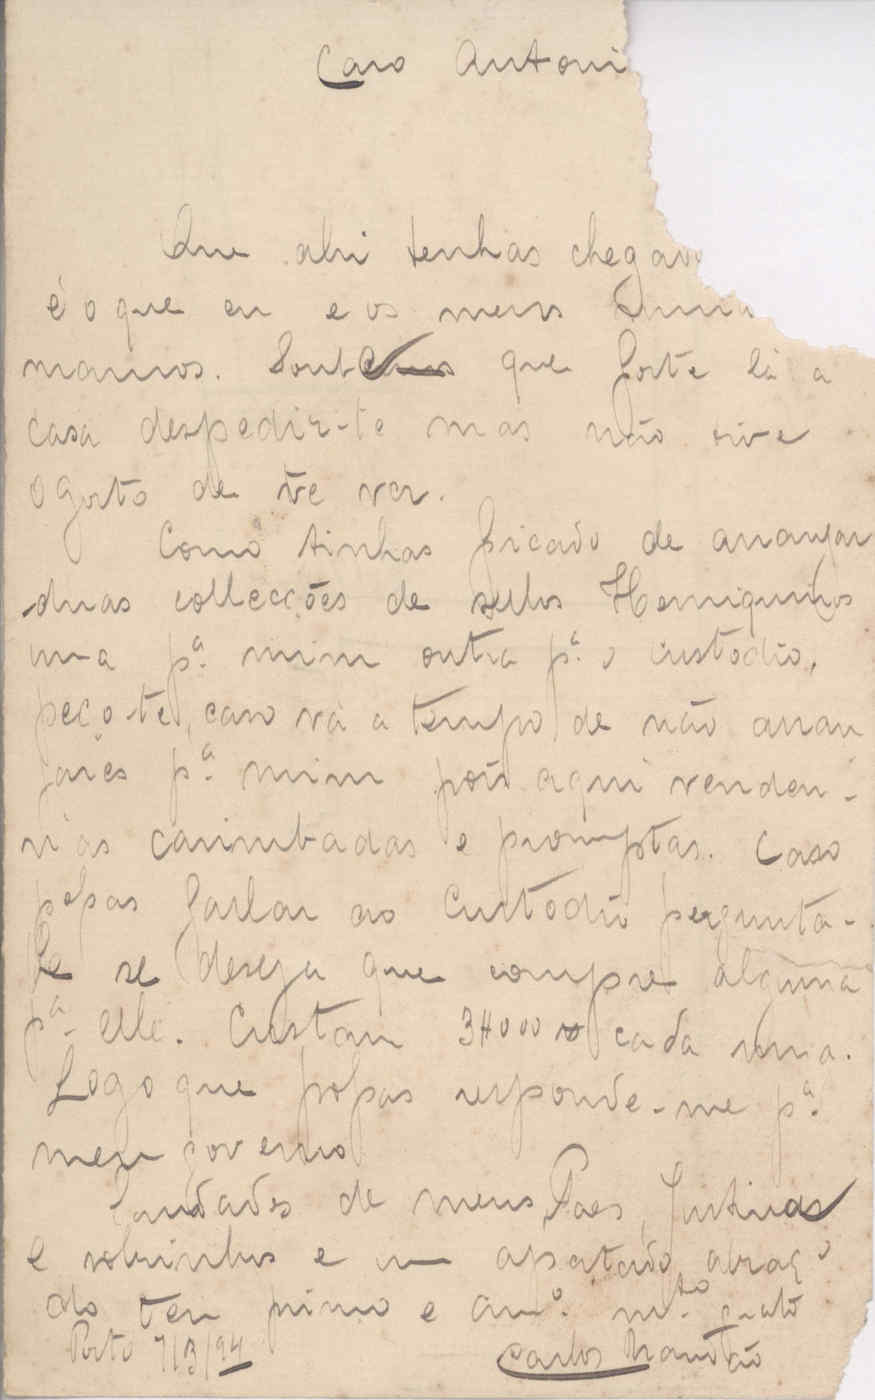 Caro Antoni
Que ahi tenhas chegad
é o que eu e os meus
mamos. que foste lá a
casa despedir-te mas não tive
o gosto de te ver.
Como tinhas ficado de arranjar
duas collecções de sellos Henriquinos
uma pª mim outra pª o Custodio,
peço-te, caso vá a tempo, de não arran
jares pª mim pois aqui vendem-
n'as carimbadas e promptas. Caso
possas fallar ao Custodio pergunta-
le se deseja que compre alguma
pª elle. Custam 3$000 rs cada uma.
Logo que possas responde-me pª
meu governo
Saudades de meus Paes, Justina
e sobrinhos e um apertado abraço
do teu primo e amº. mto grato
Porto 7/3/94 Carlos